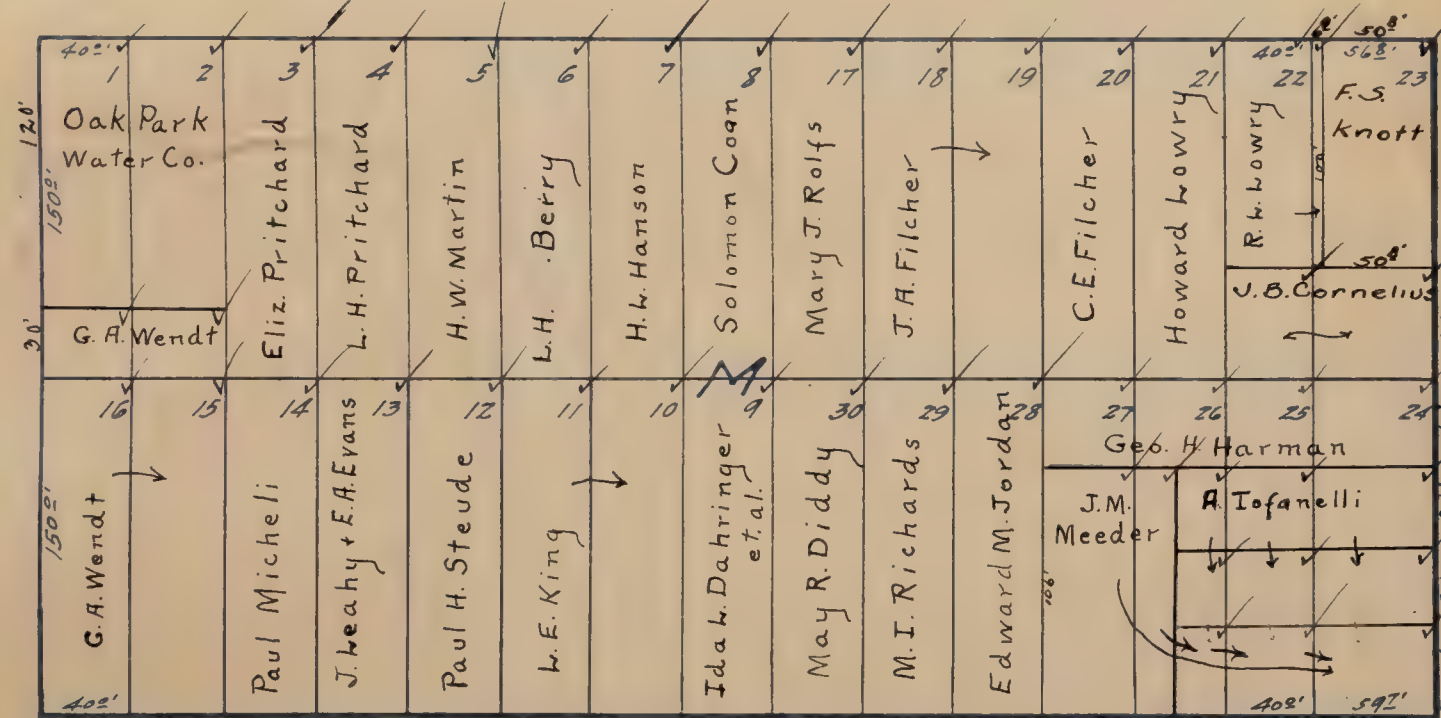 40º' 1 2 3 4 5 6 7 8 17 18 19 20 21 40º' 22 6º' 50⁸' 56⁸' 23
120'
150º'
30'
Oak Park
Water Co.
G. A. Wendt
Eliz. Pritchard
L. H. Pritchard
H. W. Martin
L. H. Berry
H. L. Hanson
Solomon Coan
Mary J. Rolfs
J. A. Filcher
C. E. Filcher
Howard Lowry
R. L. Lowry
100'
F. S.
Knott
50⁸'
J. B. Cornelius
M
16 15 14 13 12 11 10 9 30 29 28 27 26 25 24
150º'
G. A. Wendt
Paul Micheli
J. Leahy + E. A. Evans
Paul H. Steude
L. E. King
Ida L. Dahringer
et. al.
May R. Diddy
M. I. Richards
Edward M. Jordan
Geo. H. Harman
J. M.
Meeder
A. Iofanelli
40º' 40º' 59⁷'